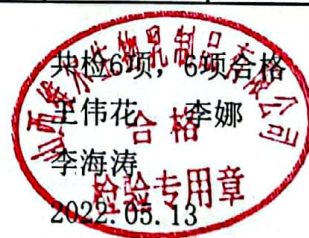 共检6项,6项合格
王伟花 李娜
李海涛
2022.05.13
山西维尔生物乳制品有限公司
合格
检验专用章